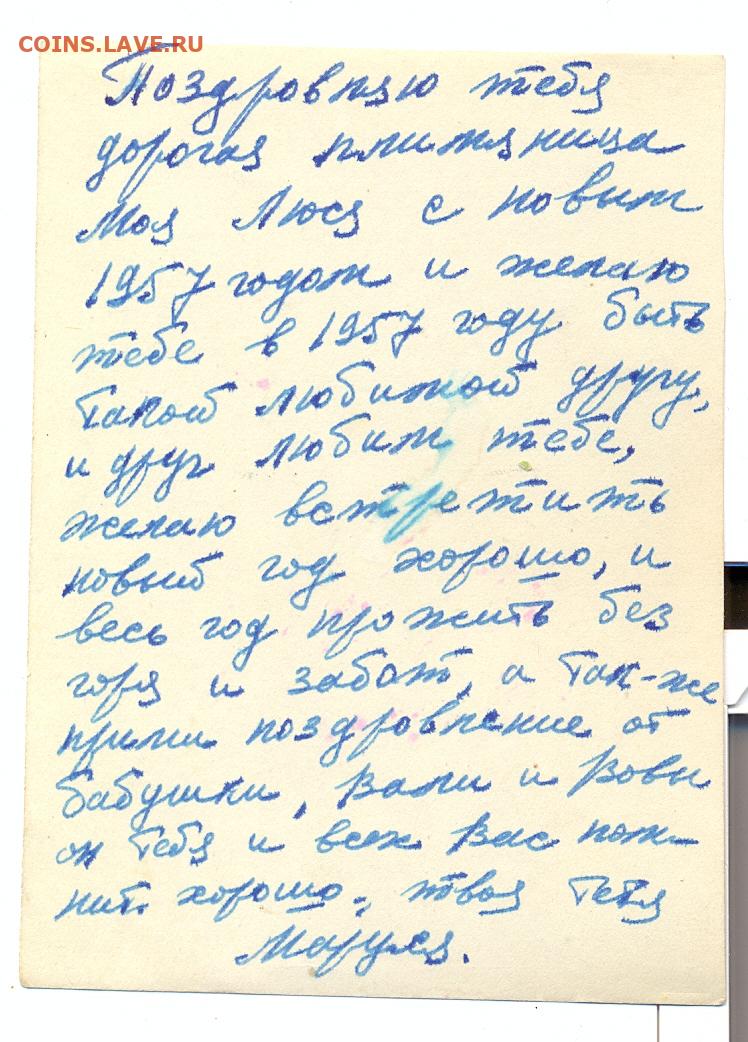 COINS.LAVE.RU
Поздровляю тебя
дорогая плимяница
Моя Люся с новым
1957 годом и желаю
тебе в 1957 году быть
такой любимой другу,
и друг любим тебе,
желаю встретить
новый год хорошо, и
весь год прожить без
горя и забот, а так-же
прими поздровление от
бабушки, Вали и Вовы
он тебя и всех Вас пом-
нит хорошо., твоя тетя
Маруся.